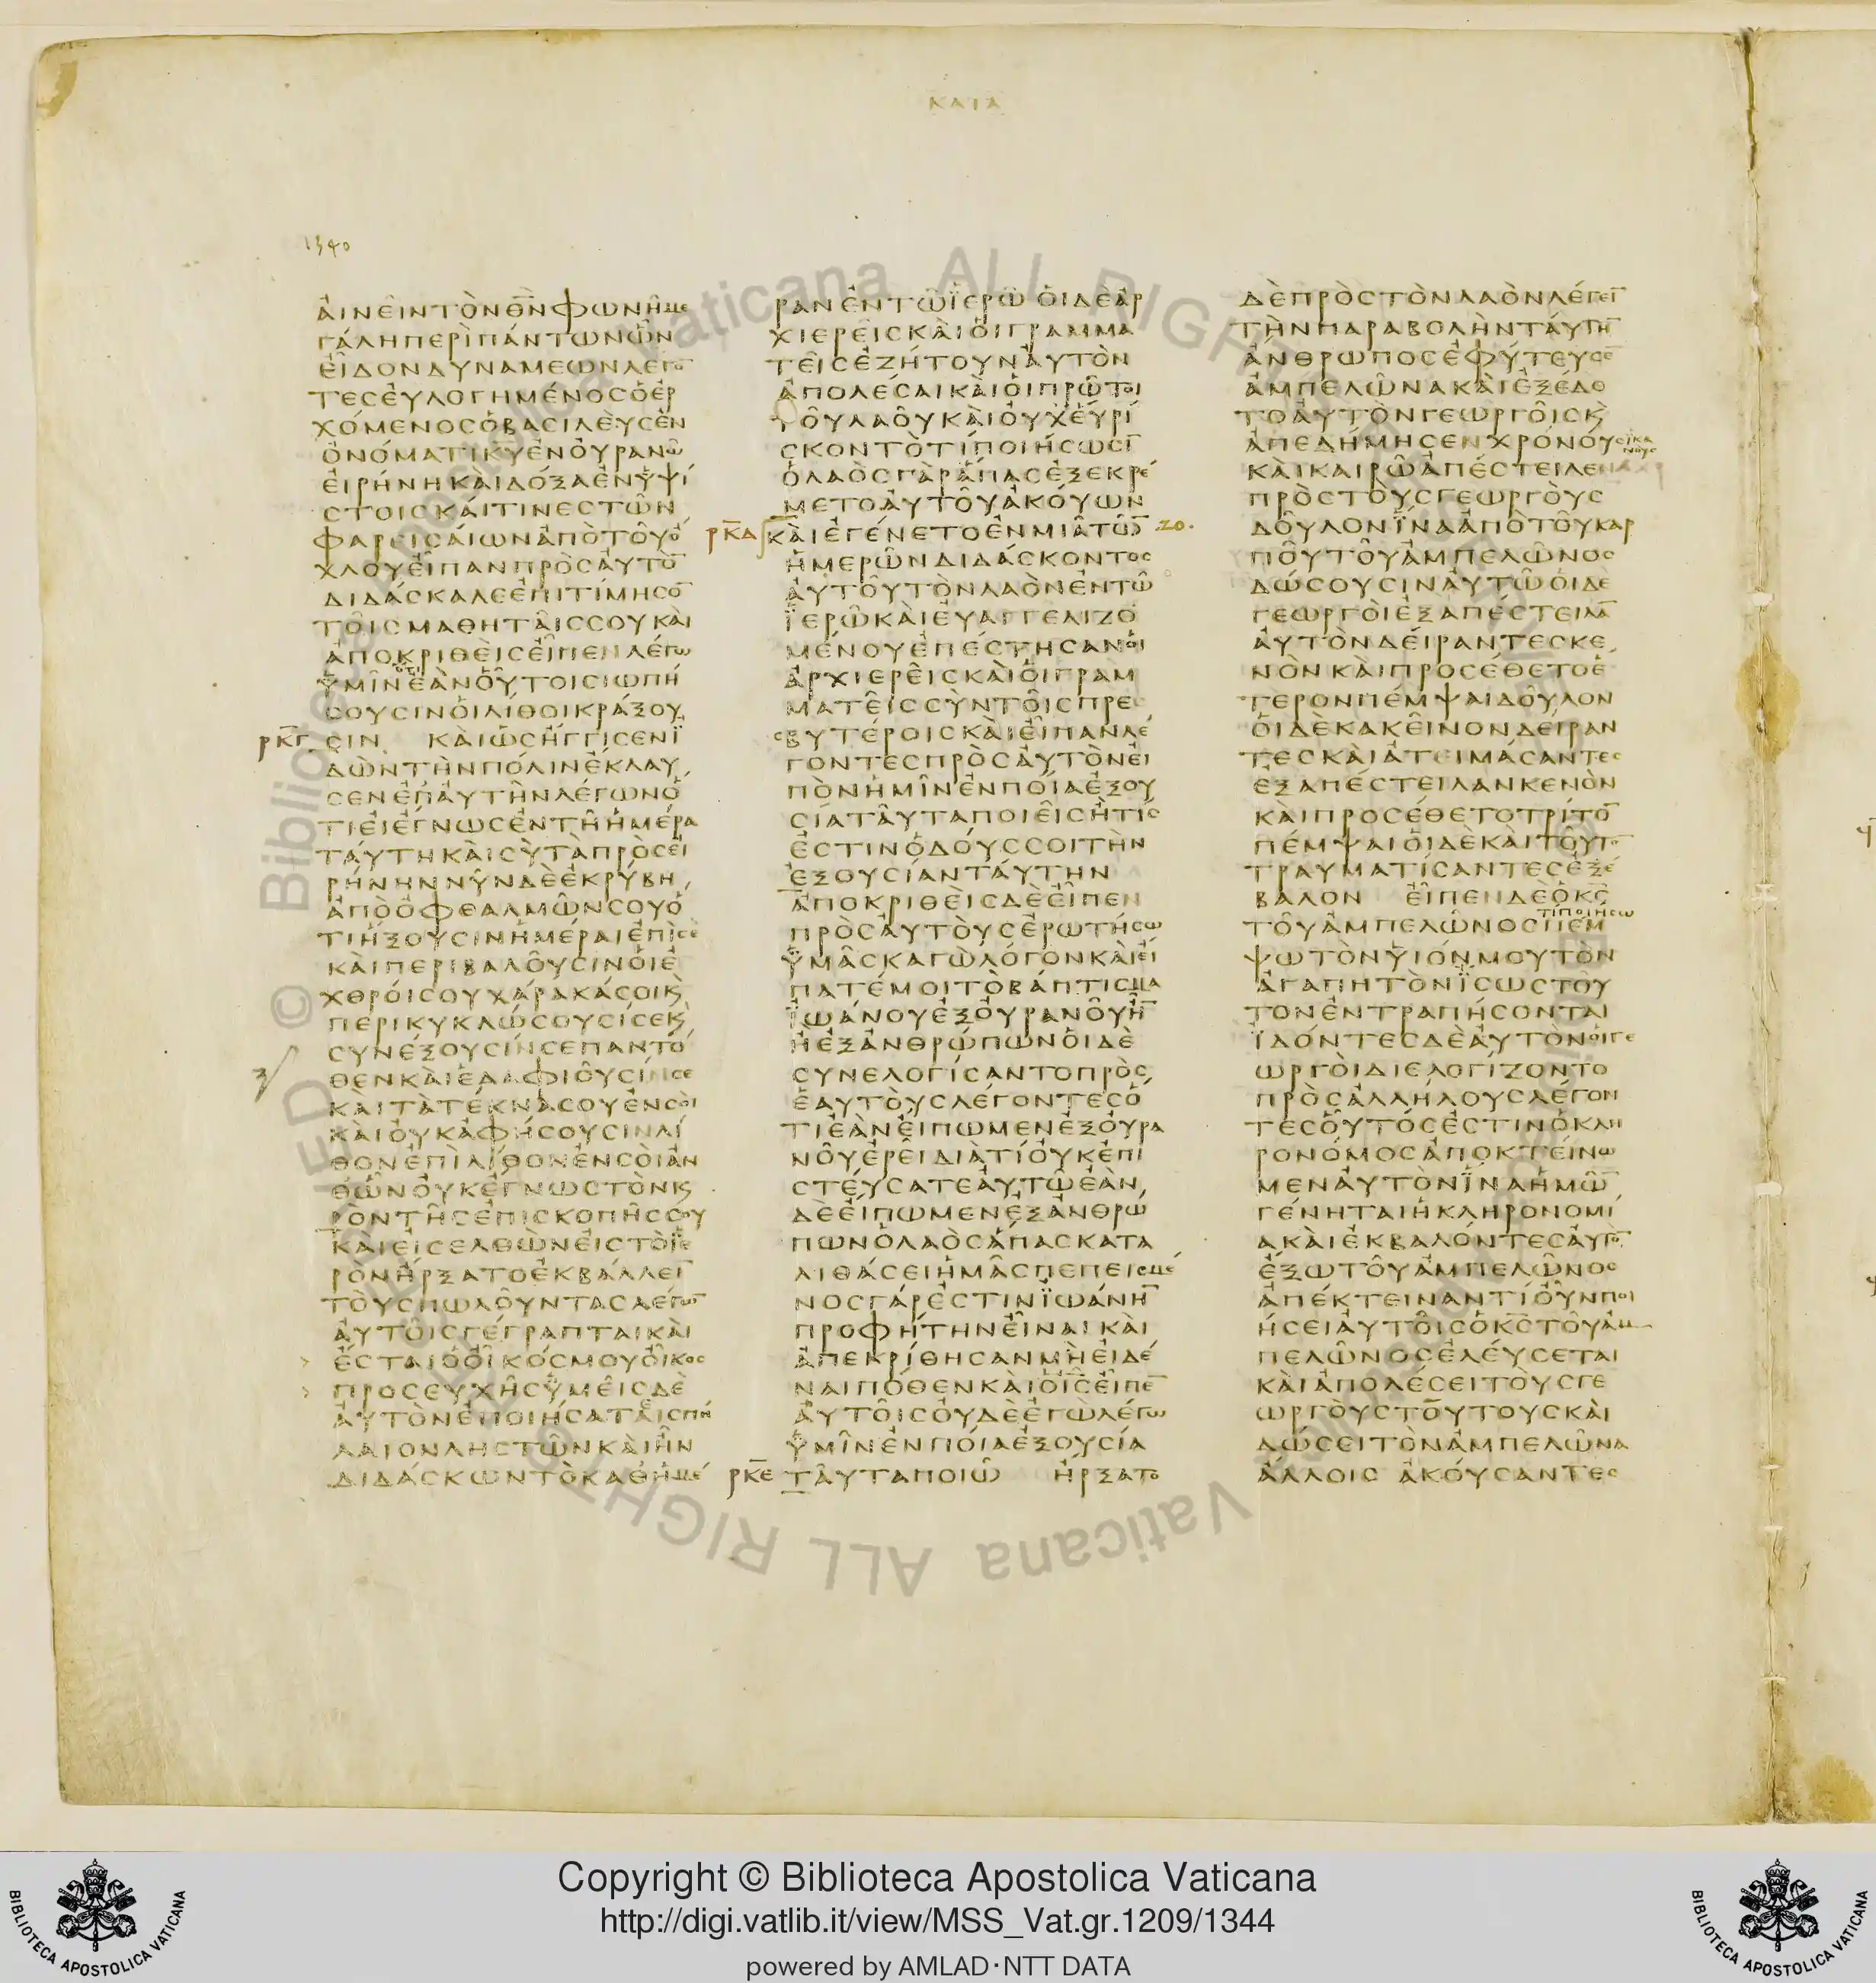 ΚΑΤΑ
1340
ΑΙΝΕΙΝΤΟΝΘ̅Ν̅ΦΩΝΗΜΕ
ΓΑΛΗΠΕΡΙΠΑΝΤΩΝΩΝ
ΕΙΔΟΝΔΥΝΑΜΕΩΝΛΕΓΟ̅
ΤΕΣΕΥΛΟΓΗΜΕΝΟΣΟΕΡ
ΧΟΜΕΝΟΣΟΒΑΣΙΛΕΥΣΕΝ
ΟΝΟΜΑΤΙΚ̅Υ̅ΕΝΟΥΡΑΝΩ
ΕΙΡΗΝΗΚΑΙΔΟΞΑΕΝΥΨΙ
ΣΤΟΙΣΚΑΙΤΙΝΕΣΤΩΝ
ΦΑΡΕΙΣΑΙΩΝΑΠΟΤΟΥΟ
ΧΛΟΥΕΙΠΑΝΠΡΟΣΑΥΤΟ̅
ΔΙΔΑΣΚΑΛΕΕΠΙΤΙΜΗΣΟ̅
ΤΟΙΣΜΑΘΗΤΑΙΣΣΟΥΚΑΙ
ΑΠΟΚΡΙΘΕΙΣΕΙΠΕΝΛΕΓΩ
ΟΤΙ
ΥΜΙΝΕΑΝΟΥΤΟΙΣΙΩΠΗ
ΣΟΥΣΙΝΟΙΛΙΘΟΙΚΡΑΞΟΥ
ΡΚΓ ΣΙΝ ΚΑΙΩΣΗΓΓΙΣΕΝΪ
ΔΩΝΤΗΝΠΟΛΙΝΕΚΛΑΥ
ΣΕΝΕΠΑΥΤΗΝΛΕΓΩΝΟ
ΤΙΕΙΕΓΝΩΣΕΝΤΗΗΜΕΡΑ
ΤΑΥΤΗΚΑΙΣΥΤΑΠΡΟΣΕΙ
ΡΗΝΗΝΝΥΝΔΕΕΚΡΥΒΗ
ΑΠΟΟΦΘΑΛΜΩΝΣΟΥΟ
ΤΙΗΞΟΥΣΙΝΗΜΕΡΑΙΕΠΙΣΕ
ΚΑΙΠΕΡΙΒΑΛΟΥΣΙΝΟΙΕ
ΧΘΡΟΙΣΟΥΧΑΡΑΚΑΣΟΙΚ
ΠΕΡΙΚΥΚΛΩΣΟΥΣΙΣΕΚ
ΣΥΝΕΞΟΥΣΙΝΣΕΠΑΝΤΟ
ΘΕΝΚΑΙΕΔΑΦΙΟΥΣΙΝΣΕ
ΚΑΙΤΑΤΕΚΝΑΣΟΥΕΝΣΟΙ
ΚΑΙΟΥΚΑΦΗΣΟΥΣΙΝΛΙ
ΘΟΝΕΠΙΛΙΘΟΝΕΝΣΟΙΑΝ
ΘΩΝΟΥΚΕΓΝΩΣΤΟΝΚ
ΡΟΝΤΗΣΕΠΙΣΚΟΠΗΣΣΟΥ
ΚΑΙΕΙΣΕΛΘΩΝΕΙΣΤΟΪΕ
ΡΟΝΗΡΞΑΤΟΕΚΒΑΛΛΕΙ̅
ΤΟΥΣΠΩΛΟΥΝΤΑΣΛΕΓΩ̅
ΑΥΤΟΙΣΓΕΓΡΑΠΤΑΙΚΑΙ
> ΕΣΤΑΙΟΟΙΚΟΣΜΟΥΟΙΚΟΣ
> ΠΡΟΣΕΥΧΗΣΫΜΕΙΣΔΕ
ΑΥΤΟΝΕΠΟΙΗΣΑΤΑΙΣΠΗ
ΛΑΙΟΝΛΗΣΤΩΝΚΑΙΗΝ
ΔΙΔΑΣΚΩΝΤΟΚΑΘΗΜΕ
ΡΑΝΕΝΤΩΪΕΡΩ ΟΙΔΕΑΡ
ΧΙΕΡΕΙΣΚΑΙΟΙΓΡΑΜΜΑ
ΤΕΙΣΕΖΗΤΟΥΝΑΥΤΟΝ
ΑΠΟΛΕΣΑΙΚΑΙΟΙΠΡΩΤΟΙ
ΤΟΥΛΑΟΥΚΑΙΟΥΧΕΥΡΙ
ΣΚΟΝΤΟΤΙΠΟΙΗΣΩΣΙ̅
ΟΛΑΟΣΓΑΡΑΠΑΣΕΞΕΚΡΕ
ΜΕΤΟΑΥΤΟΥΑΚΟΥΩΝ
ΡΚΔ ΚΑΙΕΓΕΝΕΤΟΕΝΜΙΑΤΩ̅ ΖΟ.
ΗΜΕΡΩΝΔΙΔΑΣΚΟΝΤΟΣ
ΑΥΤΟΥΤΟΝΛΑΟΝΕΝΤΩ
ΪΕΡΩΚΑΙΕΥΑΓΓΕΛΙΖΟ
ΜΕΝΟΥΕΠΕΣΤΗΣΑΝΟΙ
ΑΡΧΙΕΡΕΙΣΚΑΙΟΙΓΡΑΜ
ΜΑΤΕΙΣΣΥΝΤΟΙΣΠΡΕ
ΣΒΥΤΕΡΟΙΣΚΑΙΕΙΠΑΝΛΕ
ΓΟΝΤΕΣΠΡΟΣΑΥΤΟΝΕΙ
ΠΟΝΗΜΙΝΕΝΠΟΙΑΕΞΟΥ
ΣΙΑΤΑΥΤΑΠΟΙΕΙΣΗΤΙΣ
ΕΣΤΙΝΟΔΟΥΣΣΟΙΤΗΝ
ΕΞΟΥΣΙΑΝΤΑΥΤΗΝ
ΑΠΟΚΡΙΘΕΙΣΔΕΕΙΠΕΝ
ΠΡΟΣΑΥΤΟΥΣΕΡΩΤΗΣΩ
ΫΜΑΣΚΑΓΩΛΟΓΟΝΚΑΙΕΙ
ΠΑΤΕΜΟΙΤΟΒΑΠΤΙΣΜΑ
ΪΩΑΝΟΥΕΞΟΥΡΑΝΟΥΗ̅
ΗΕΞΑΝΘΡΩΠΩΝΟΙΔΕ
ΣΥΝΕΛΟΓΙΣΑΝΤΟΠΡΟΣ
ΕΑΥΤΟΥΣΛΕΓΟΝΤΕΣΟ
ΤΙΕΑΝΕΙΠΩΜΕΝΕΞΟΥΡΑ
ΝΟΥΕΡΕΙΔΙΑΤΙΟΥΚΕΠΙ
ΣΤΕΥΣΑΤΕΑΥΤΩΕΑΝ
ΔΕΕΙΠΩΜΕΝΕΞΑΝΘΡΩ
ΠΩΝΟΛΑΟΣΑΠΑΣΚΑΤΑ
ΛΙΘΑΣΕΙΗΜΑΣΠΕΠΕΙΣΜΕ
ΝΟΣΓΑΡΕΣΤΙΝΪΩΑΝΗ̅
ΠΡΟΦΗΤΗΝΕΙΝΑΙΚΑΙ
ΑΠΕΚΡΙΘΗΣΑΝΜΗΕΙΔΕ
ΝΑΙΠΟΘΕΝΚΑΙΟΙ̅Σ̅ΕΙΠΕ̅
ΑΥΤΟΙΣΟΥΔΕΕΓΩΛΕΓΩ
ΫΜΙΝΕΝΠΟΙΑΕΞΟΥΣΙΑ
ΡΚΕ ΤΑΥΤΑΠΟΙΩ ΗΡΞΑΤΟ
ΔΕΠΡΟΣΤΟΝΛΑΟΝΛΕΓΕΙ̅
ΤΗΝΠΑΡΑΒΟΛΗΝΤΑΥΤΗ̅
ΑΝΘΡΩΠΟΣΕΦΥΤΕΥΣΕ̅
ΑΜΠΕΛΩΝΑΚΑΙΕΞΕΔΟ
ΤΟΑΥΤΟΝΓΕΩΡΓΟΙΣΚ
ΑΠΕΔΗΜΗΣΕΝΧΡΟΝΟΥΣΙΚΑ
ΝΟΥΣ
ΚΑΙΚΑΙΡΩΑΠΕΣΤΕΙΛΕΝ
ΠΡΟΣΤΟΥΣΓΕΩΡΓΟΥΣ
ΔΟΥΛΟΝΪΝΑΑΠΟΤΟΥΚΑΡ
ΠΟΥΤΟΥΑΜΠΕΛΩΝΟΣ
ΔΩΣΟΥΣΙΝΑΥΤΩΟΙΔΕ
ΓΕΩΡΓΟΙΕΞΑΠΕΣΤΕΙΛΑ̅
ΑΥΤΟΝΔΕΙΡΑΝΤΕΣΚΕ
ΝΟΝΚΑΙΠΡΟΣΕΘΕΤΟΕ
ΤΕΡΟΝΠΕΜΨΑΙΔΟΥΛΟΝ
ΟΙΔΕΚΑΚΕΙΝΟΝΔΕΙΡΑΝ
ΤΕΣΚΑΙΑΤΕΙΜΑΣΑΝΤΕΣ
ΕΞΑΠΕΣΤΕΙΛΑΝΚΕΝΟΝ
ΚΑΙΠΡΟΣΕΘΕΤΟΤΡΙΤΟ̅
ΠΕΜΨΑΙΟΙΔΕΚΑΙΤΟΥΤΟ̅
ΤΡΑΥΜΑΤΙΣΑΝΤΕΣΕΞΕ
ΒΑΛΟΝ ΕΙΠΕΝΔΕΟΚ̅Σ̅
ΤΙΠΟΙΗΣΩ
ΤΟΥΑΜΠΕΛΩΝΟΣΠΕΜ
ΨΩΤΟΝΥΙΟΝΜΟΥΤΟΝ
ΑΓΑΠΗΤΟΝΪΣΩΣΤΟΥ
ΤΟΝΕΝΤΡΑΠΗΣΟΝΤΑΙ
ΪΔΟΝΤΕΣΔΕΑΥΤΟΝΟΙΓΕ
ΩΡΓΟΙΔΙΕΛΟΓΙΖΟΝΤΟ
ΠΡΟΣΑΛΛΗΛΟΥΣΛΕΓΟΝ
ΤΕΣΟΥΤΟΣΕΣΤΙΝΟΚΛΗ
ΡΟΝΟΜΟΣΑΠΟΚΤΕΙΝΩ
ΜΕΝΑΥΤΟΝΪΝΑΗΜΩ̅
ΓΕΝΗΤΑΙΗΚΛΗΡΟΝΟΜΙ
ΑΚΑΙΕΚΒΑΛΟΝΤΕΣΑΥΤΟ̅
ΕΞΩΤΟΥΑΜΠΕΛΩΝΟΣ
ΑΠΕΚΤΕΙΝΑΝΤΙΟΥΝΠΟΙ
ΗΣΕΙΑΥΤΟΙΣΟΚ̅Σ̅ΤΟΥΑΜ
ΠΕΛΩΝΟΣΕΛΕΥΣΕΤΑΙ
ΚΑΙΑΠΟΛΕΣΕΙΤΟΥΣΓΕ
ΩΡΓΟΥΣΤΟΥΤΟΥΣΚΑΙ
ΔΩΣΕΙΤΟΝΑΜΠΕΛΩΝΑ
ΑΛΛΟΙΣ ΑΚΟΥΣΑΝΤΕΣ
Copyright © Biblioteca Apostolica Vaticana
http://digi.vatlib.it/view/MSS_Vat.gr.1209/1344
powered by AMLAD·NTT DATA
BIBLIOTECA APOSTOLICA VATICANA
BIBLIOTECA APOSTOLICA VATICANA